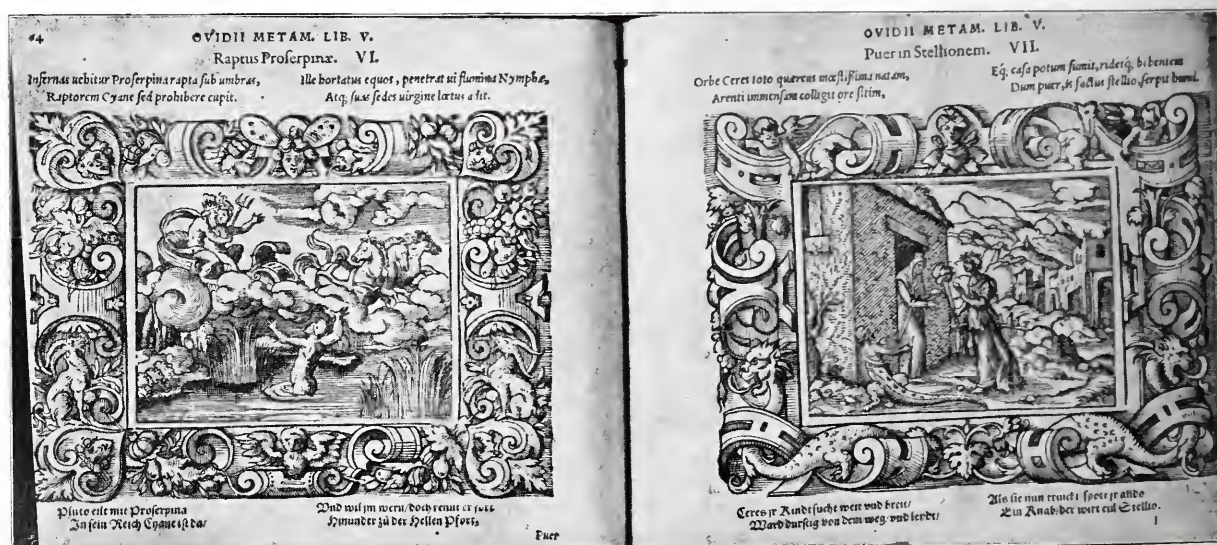 64
OVIDII METAM. LIB. V.
Raptus Proserpinæ. VI.
Infernas uehitur Proserpina rapta sub umbras,
Raptorem Cyane sed prohibere cupit.
Ille hortatus equos, penetrat ui flumina Nymphæ,
Atq; suas sedes uirgine lætus adit.
Pluto eilt mit Proserpina
In sein Reich Cyane ist da/
Vnd wil jm wern/ doch rennt er fort
Hinunder zů der Hellen Pfort.
Puer
OVIDII METAM. LIB. V.
Puer in Stellionem. VII.
Orbe Ceres toto quærens mœstissima natam,
Arenti immensam colligit ore sitim,
Eq; casa potum sumit, ridetq; bibentem
Dum puer, is factus stellio, serpit humi.
Ceres jr Kindt sucht weit vnd breit/
Ward durstig von dem weg vnd leydt/
Als sie nun trinckt spott jr
Ein Knab/ der wirt ein Stellio.
I